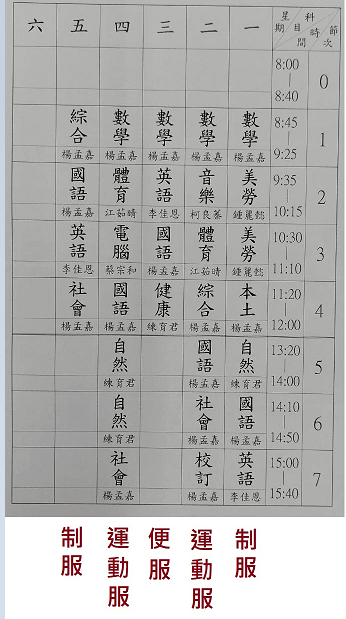 六 五 四 三 二 一 星期 科目 時間 節次
8:00 | 8:40 0
綜合 數學 數學 數學 數學 8:45 | 9:25 1
楊孟嘉 楊孟嘉 楊孟嘉 楊孟嘉 楊孟嘉
國語 體育 英語 音樂 美勞 9:35 | 10:15 2
楊孟嘉 江茹晴 李佳恩 柯良蓁 鍾麗懿
英語 電腦 國語 體育 美勞 10:30 | 11:10 3
李佳恩 蔡宗和 楊孟嘉 江茹晴 鍾麗懿
社會 國語 健康 綜合 本土 11:20 | 12:00 4
楊孟嘉 楊孟嘉 練育君 楊孟嘉 楊孟嘉
自然 國語 自然 13:20 | 14:00 5
練育君 楊孟嘉 練育君
自然 社會 國語 14:10 | 14:50 6
練育君 楊孟嘉 楊孟嘉
社會 校訂 英語 15:00 | 15:40 7
楊孟嘉 楊孟嘉 李佳恩
制服 運動服 便服 運動服 制服